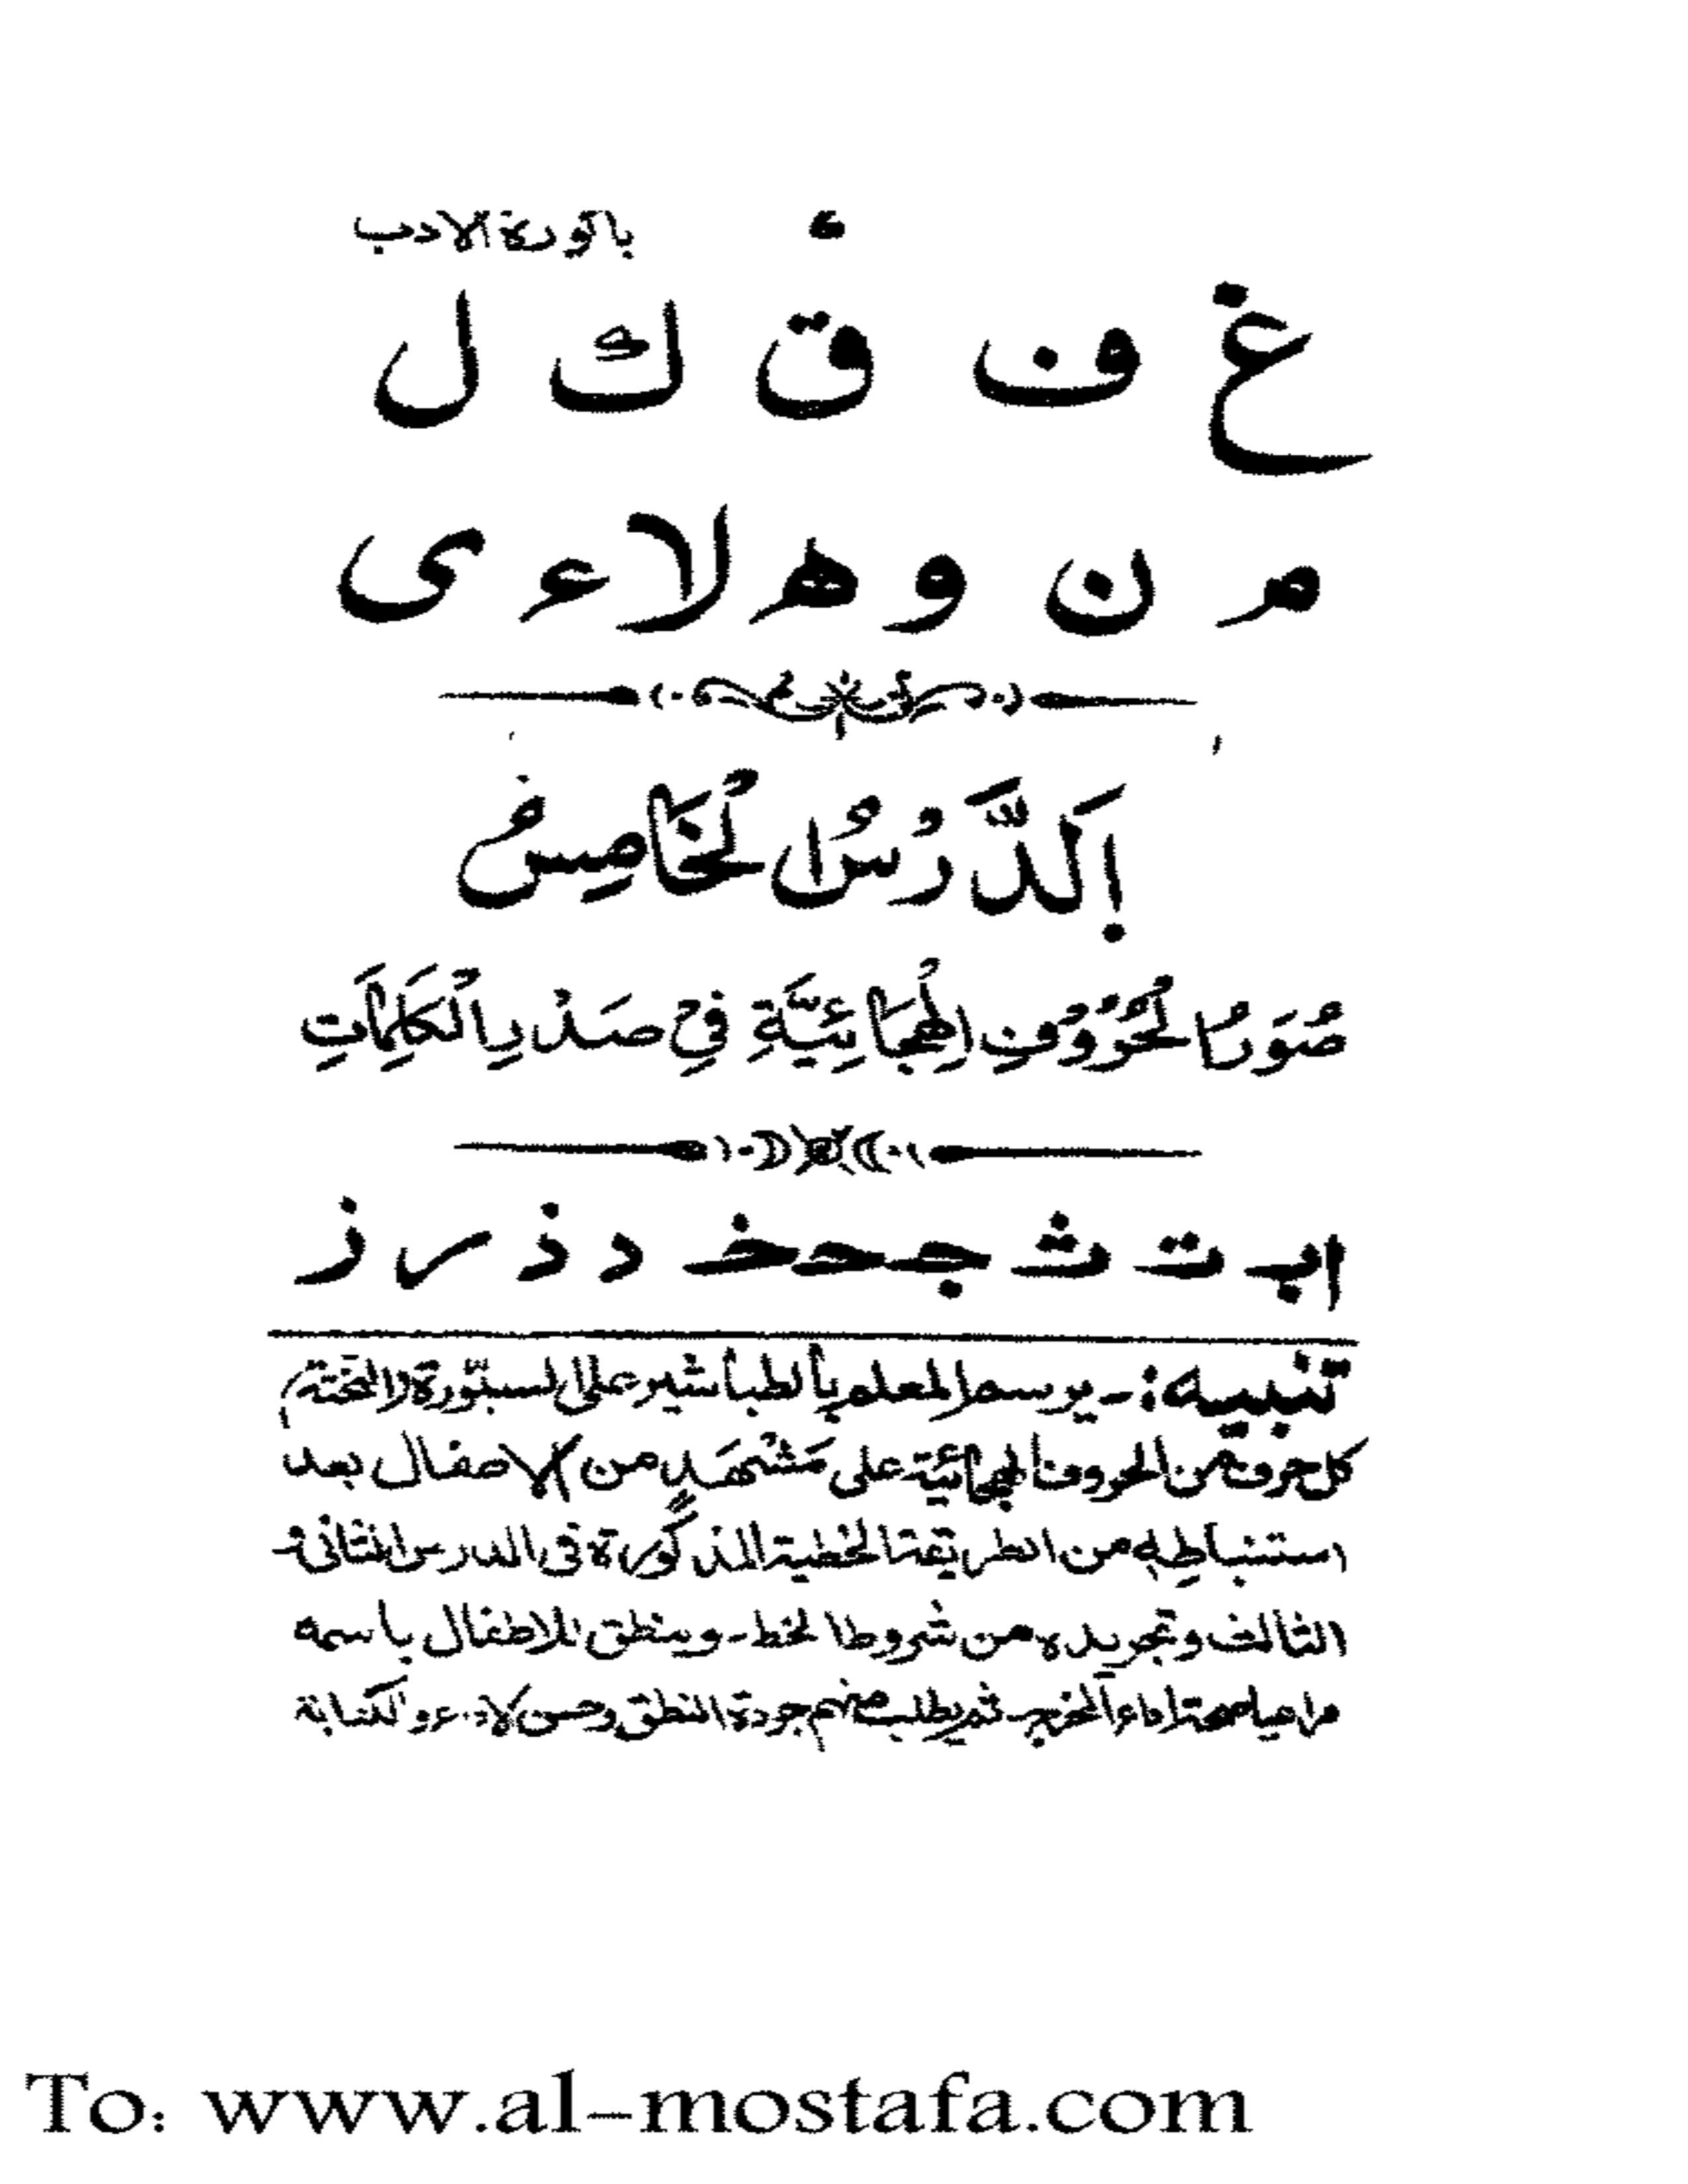 باكورة الادب ء
غ ف ق ك ل
م ن و ه لا ء ى
اَلدَّرْسُ الْخَامِسُ
صُوَرُ الْحُرُوفِ الْهِجَائِيَّةِ فِيْ صَدْرِ الْكَلِمَاتِ
ا بـ تـ ثـ جـ حـ خـ د ذ ر ز
تنبيه :- يرسم المعلم بالطباشير على السبّورة (التختة)
كل حرف من الحروف الهجائيّة على مَشْهَدٍ من الاطفال بعد
استنباطِهِ من الطريقة الخطية المذكورة فى الدرس الثانى و
الثالث وتجريده من شروط الخط - وينطق للاطفال باسمه
مراعيا صحة اداء المخرج - ثم يطلب منهم جودة النطق وحسن الاداء والكتابة
To: www.al-mostafa.com